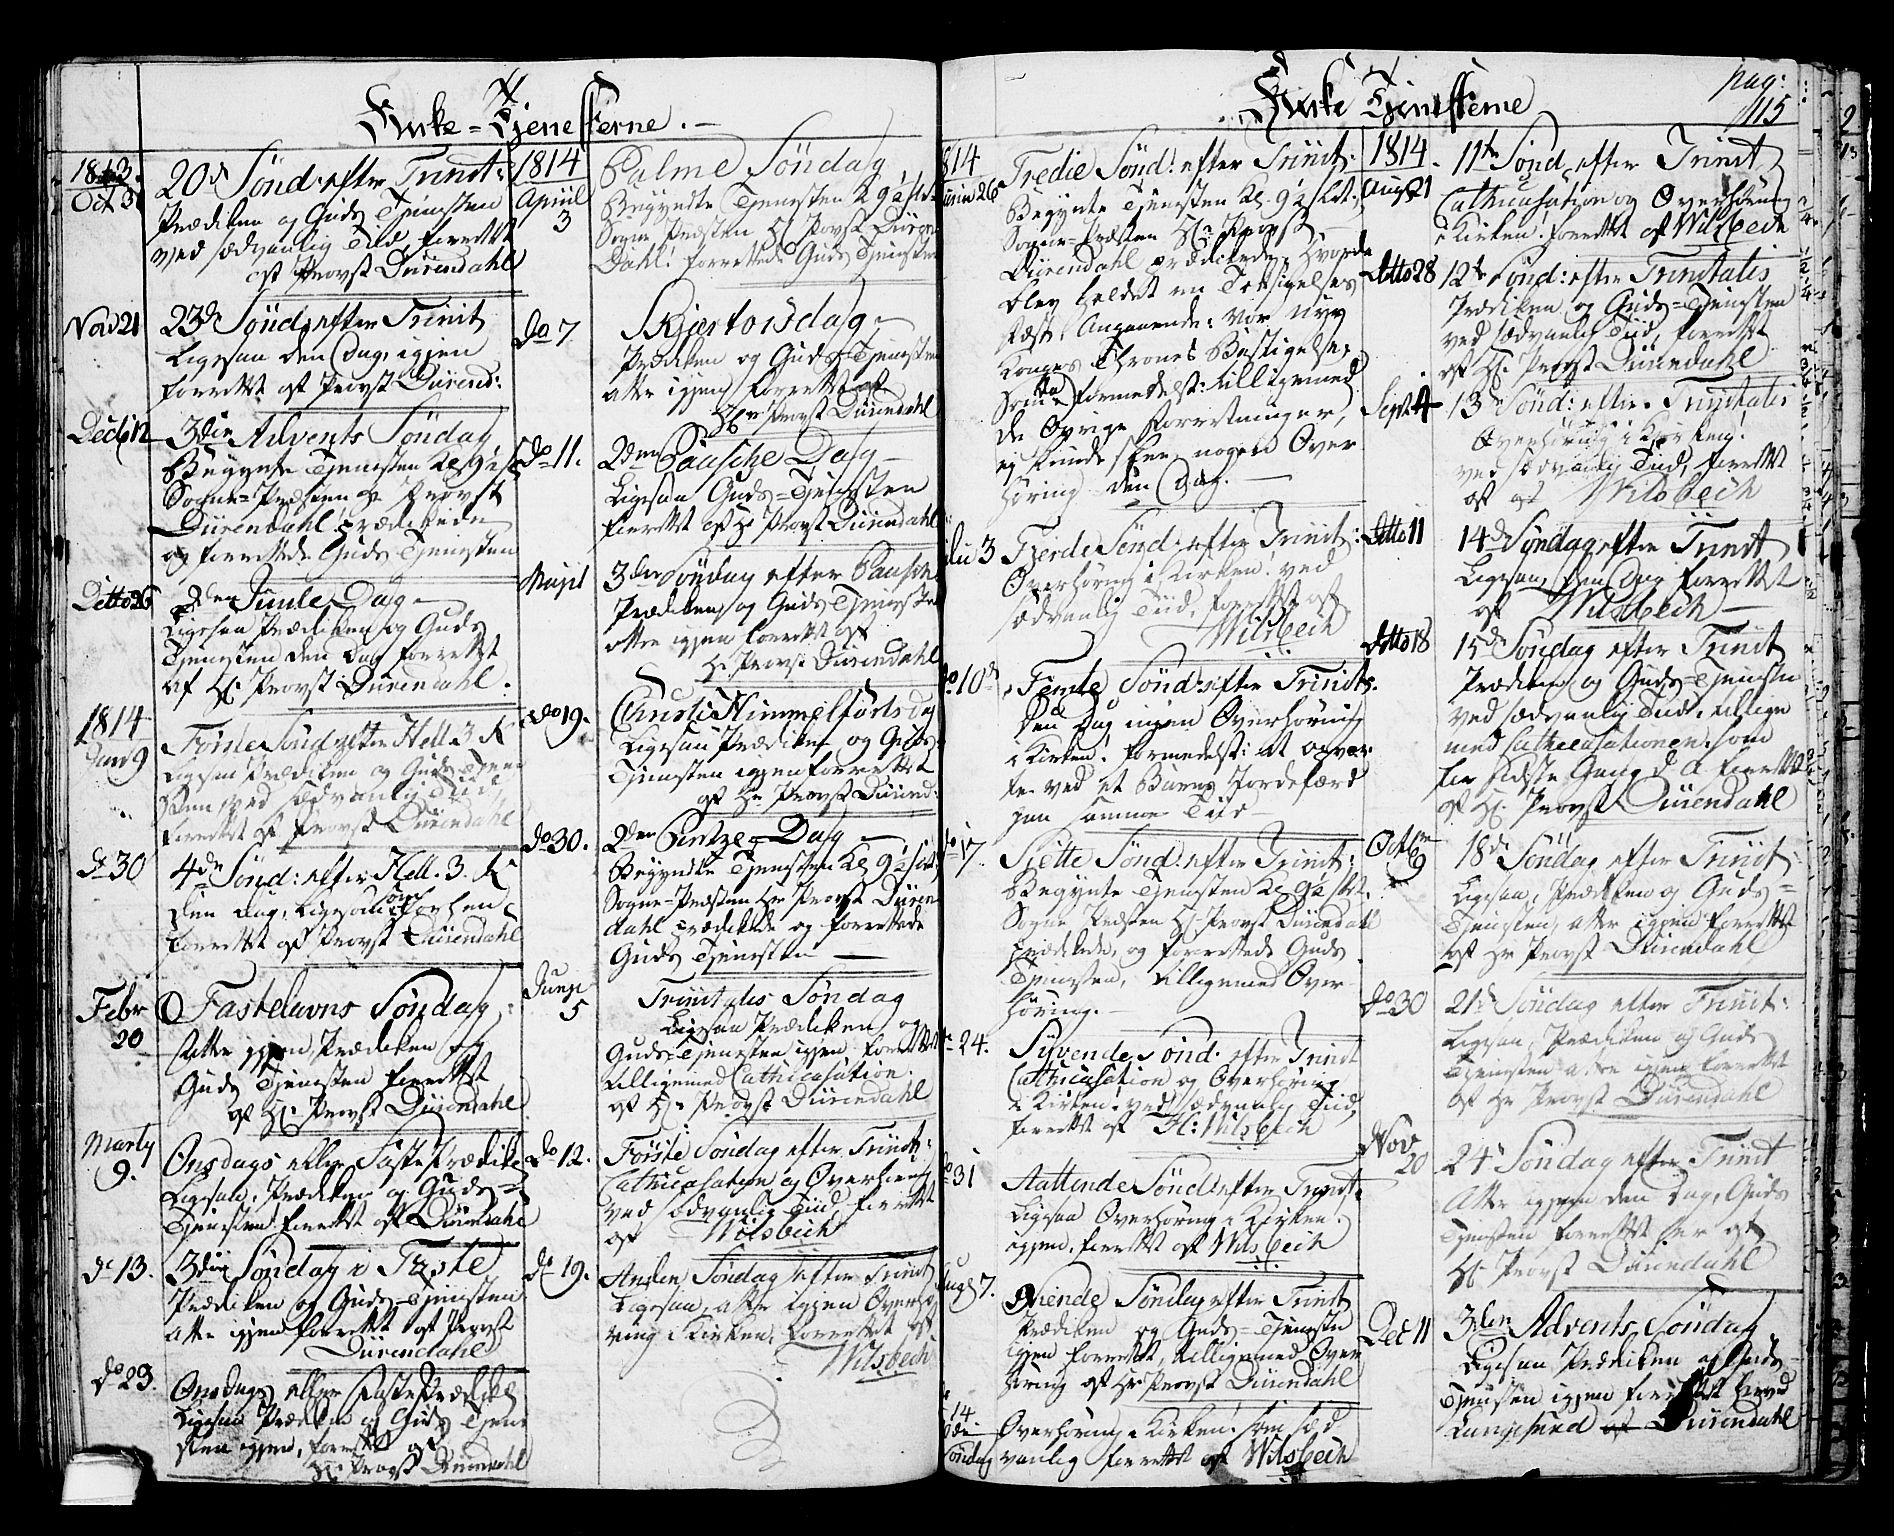 Kirke-Tjenesterne.
1813.
Oct 31
20de Sönd: efter Trinit:
Prædiken og Guds Tjenesten
ved sædvanlig Tiid, forrettet
af Provst Dürendahl
Nov 21
23de Sönd: efter Trinit
Ligesaa den Dag, igjen
forrettet af Provst Dürend:
Decbr 12
3die Advents Söndag
Begynte Tjenesten Kl 9½ Slet
Sogne-Præsten Hr Provst
Dürendahl prædikede
og forrettede Guds Tjenesten
Ditto 26
2den Juule Dag
Ligesaa Prædiken og Guds
Tjenesten den Dag forrettet
af Hr Provst Dürendahl.
1814
Jan 9
Förste Sönd efter Hell. 3 K
Ligesaa Prædiken og Guds Tjene
sten, ved sædvanlig Tiid,
forrettet af Provst Dürendahl
Do 30
4de Sönd: efter Hell. 3. K
den Dag, Ligesaa som forhen
forrettet af Provst Dürendahl
Febr
20
Fastelavns Söndag
Atter igjen Prædiken og
Guds Tjenesten forrettet
af Hr Provst Dürendahl
Marty
9.
Onsdags eller Faste Prædike
Ligesaa, Prædiken og Guds
Tjenesten forrettet af Dürendahl
Do 13.
3die Söndag i Faste
Prædiken og Guds-Tjenesten
atter igjen forrettet af Provst
Dürendahl
Do 23.
Onsdags eller Faste Prædiken
Ligesaa Prædiken og Guds Tjene
sten igjen, forrettet af
Hr Provst Dürendahl
1814
April
3
Palme Söndag
Begyndte Tjenesten Kl 9½ Slet
Sogne Præsten Hr Provst Düren
Dahl. forrettede Guds Tjenesten
Do 7
Skjærtorsdag
Prædiken og Guds-Tjenesten
atter igjen forrettet af
Hr Provst Dürendahl
Do 11.
2den Paasche Dag
Ligesaa Guds-Tjenesten
forrettet af Hr Provst Dürendahl
Maji 1
3die Söndag efter Paasche
Prædiken og Guds Tjenesten
atter igjen forrettet af
Hr Provst Dürendahl
Do 19.
Christi Himmelfarts dag
Ligesaa Prædiken og Guds
Tjenesten igjen forrettet
af Hr Provst Dürend:
Do 30.
2den Pintze-Dag
Begyndte Tjenesten Kl 9½ Slet
Sogne-Præsten Hr Provst Düren
dahl prædikede og forrettede
Guds Tjenesten
Junji
5
Trinitatis Söndag
Ligesaa Prædiken og
Guds-Tjenesten igjen forrettet
tilligemed Cathicasation.
af Hr Provst Dürendahl
Do 12.
Förste Söndag efter Trinit:
Cathicasation og Overhöring
ved sædvanlig Tiid, forrettet
af Wilsbech
Do 19.
Anden Söndag efter Trinit
Ligesaa, atter igjen Overhö
ring i Kirken, forrettet af
Wilsbech
Kirke Tjenesterne
pag:
115
1814
Junii 26
Tredie Sönd: efter Trinit:
Begynte Tjenesten Kl. 9½ Slet.
Sogne-Præsten Hr Provst
Dürendahl prædikede, hvorda
blev holdet en Taksigelses
fæst, Angaaende: vor nye
Konges Thrones Bestigelse;
formedelst: tilligemed
de Övrige forretninger,
ej kunde skee nogen Over
höring den Dag.
Julii 3
Fierde Sönd: efter Trinit:
Overhöring i Kirken ved
sædvanlig Tiid, forrettet af
Wilsbech
Do 10de
Femte Sönd: efter Trinit.
den Dag ingen Overhöring
i Kirken! formedelst: at opvar
te ved et Barns Jordefærd
paa samme Tiid
Do 17.
Siette Sönd: efter Trinit:
Begynte Tjenesten Kl 9½ Slet.
Sogne Præsten Hr Provst Dürendahl
prædikede, og forrettede Guds
Tjenesten, tilligemed Over
höring.
Do 24.
Syvende Sönd. efter Trinit
Cathicasation og Overhöring
i Kirken. ved sædvanlig Tiid,
forrettet af H: Wilsbech
Do 31
Aattende Sönd: efter Trinit.
Ligesaa Overhöring i Kirken.
igjen, forrettet af Wilsbech
Aug 7.
Niende Söndag efter Trinit
Prædiken og Guds-Tjenesten
igjen forrettet, tilligemed Over
höring af Hr Provst Dürendahl
14
Söndag
Overhöring i Kirken: som sæd
vanlig forrettet af Wilsbech
1814.
Aug 21
11te Sönd. efter Trinit
Cathicasation og Overhöring
i Kirken! forrettet af Wilsbech
Ditto 28
12te Sönd: efter Trinitatis
Prædiken og Guds-Tjenesten
ved sædvanlig Tiid, forrettet
af Hr. Provst Dürendahl
Sept 4
13de Sönd: efter. Trinitatis
Overhöring i Kirken!
ved sædvanlig Tiid, forrettet
af Wilsbech
Ditto 11
14de Söndag efter Trinit
Ligesaa, den Dag forrettet
af Wilsbech
Ditto 18
15de Söndag efter Trinit
Prædiken og Guds-Tjenesten
ved sædvanlig Tiid, tillige
med Cathicasationen. som
for sidste Gang d A forrettet
af Hr. Provst Dürendahl
Octbr
9
18de Söndag efter Trinit:
Ligesaa, Prædiken og Guds-
Tjenesten, atter igjen forrettet
af Hr Provst Dürendahl
Do 30
21de Söndag efter Trinit:
Ligesaa, Prædiken og Guds
Tjenesten atter igjen forrettet
af Hr Provst Dürendahl
Nov
20
24de Söndag efter Trinit
Atter igjen den Dag, Guds
Tjenesten forrettet her af
Hr Provst Dürendahl
Dec 11
3den Advents Söndag
Ligesaa Prædiken og Guds-
Tjenesten igjen forrettet herved
Langesund af Dürendahl